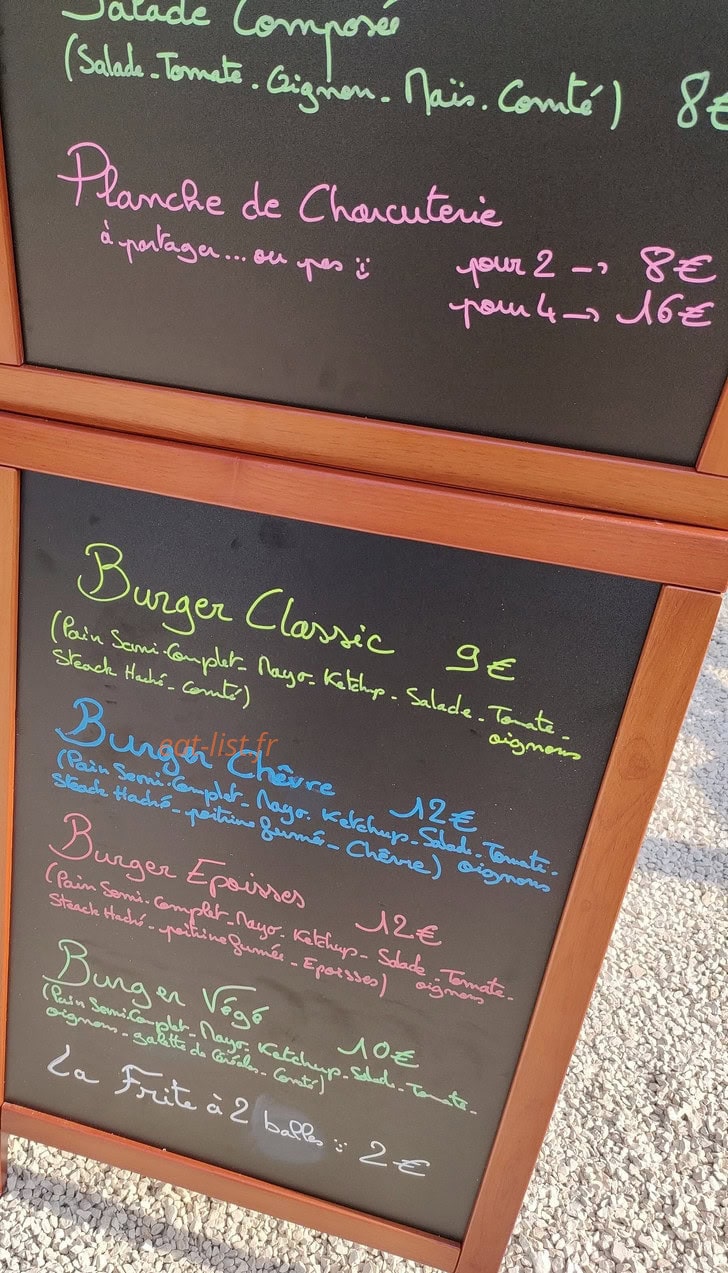 Salade Composée
(Salade - Tomate - Oignon - Maïs - Comté) 8€
Planche de Charcuterie
à partager... ou pas :)
pour 2 -> 8€
pour 4 -> 16€
Burger Classic 9€
(Pain Semi-Complet - Mayo - Ketchup - Salade - Tomate -
oignons
Steack Haché - Comté)
Burger Chêvre 12€
eat-list.fr
(Pain Semi-Complet - Mayo - Ketchup - Salade - Tomate -
oignons
Steack Haché - poitrine fumée - Chêvre)
Burger Epoisses 12€
(Pain Semi-Complet - Mayo - Ketchup - Salade - Tomate -
oignons
Steack Haché - poitrine fumée - Epoisses)
Burger Végé 10€
(Pain Semi-Complet - Mayo - Ketchup - Salade - Tomate -
oignons - galette de Céréales - Comté)
La Frite à 2 balles :) 2€